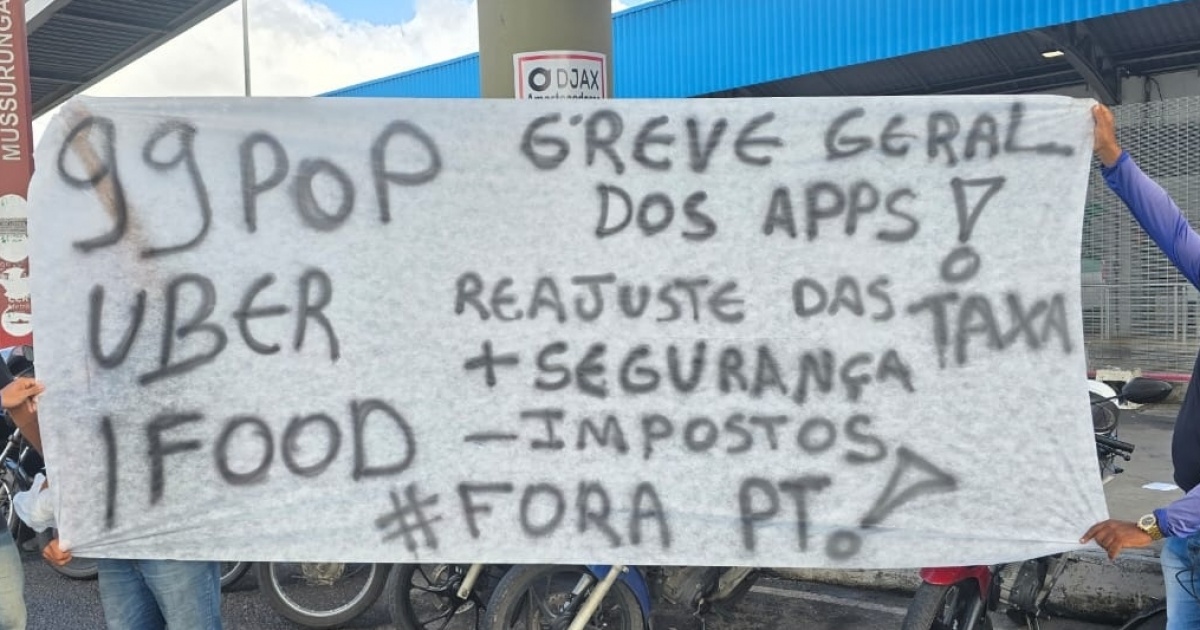 MUSSURUNGA
DJAX
99 POP
UBER
IFOOD
GREVE GERAL
DOS APPS!
REAJUSTE DAS TAXA
+ SEGURANÇA
- IMPOSTOS
#FORA PT!